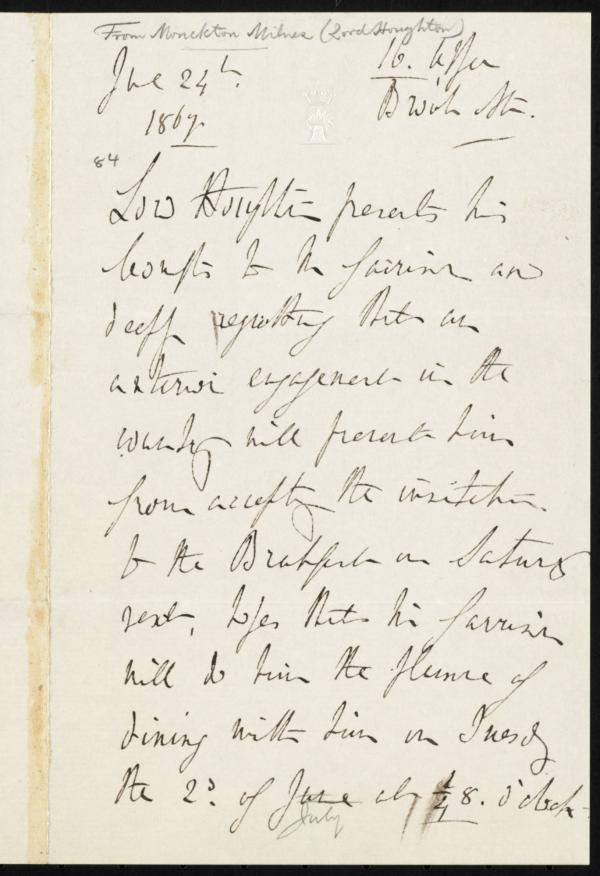 From Monckton Milnes (Lord Houghton)
June 24th.
1867.
16. Upper
Brook St.
84
Lord Houghton presents his
Compts to Mr Garrison and
deeply regretting that an
anterior engagement in the
country will prevent him
from accepting the invitation
to the Breakfast on Saturday
next, hopes that Mr Garrison
will do him the pleasure of
dining with him on Tuesday
the 2d. of June at ¼ 8. o'clock
July